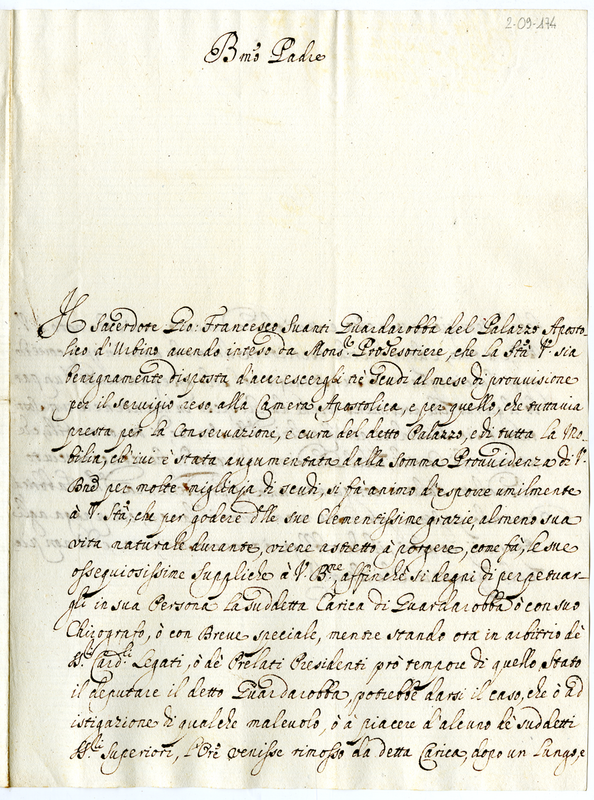 2-09-174
Bmo Padre
Il Sacerdote Gio: Francesco Guardarobba del Palazzo Aposto-
lico d'Urbino avendo inteso da Mons.r ProTesoriere, che la Stà V.a sia
benignamente disposta d'accrescergli trè Scudi al mese di provvisione
per il servigio reso alla Camera Apostolica, e per quello, che tuttavia
presta per la Conservazione, e cura del detto Palazzo, e di tutta la Mo-
bilia, ch'ivi è stata augumentata dalla Somma Providenza di V.
Bne per molte migliaja di scudi, si fà animo d'esporre umilmente
à V. Stà, che per godere delle sue Clementissime grazie, almeno sua
vita naturale durante, viene astretto à porgere, come fà, le sue
ossequiosissime suppliche à V. Bne, affinche si degni di perpetuar-
gli in sua Persona la suddetta Carica di Guardarobba ò con suo
Chirografo, ò con Breve speciale, mentre stando ora in arbitrio dè
SS.ri Card.li Legati, ò dè Prelati Presidenti prò tempore di quello Stato
il deputare il detto Guardarobba, potrebbe darsi il caso, che ò ad
istigazione di qualche malevolo, ò à piacere d'alcuno dè suddetti
SS.ri Superiori, l'Ore venisse rimosso da detta Carica, dopo un lungo, e